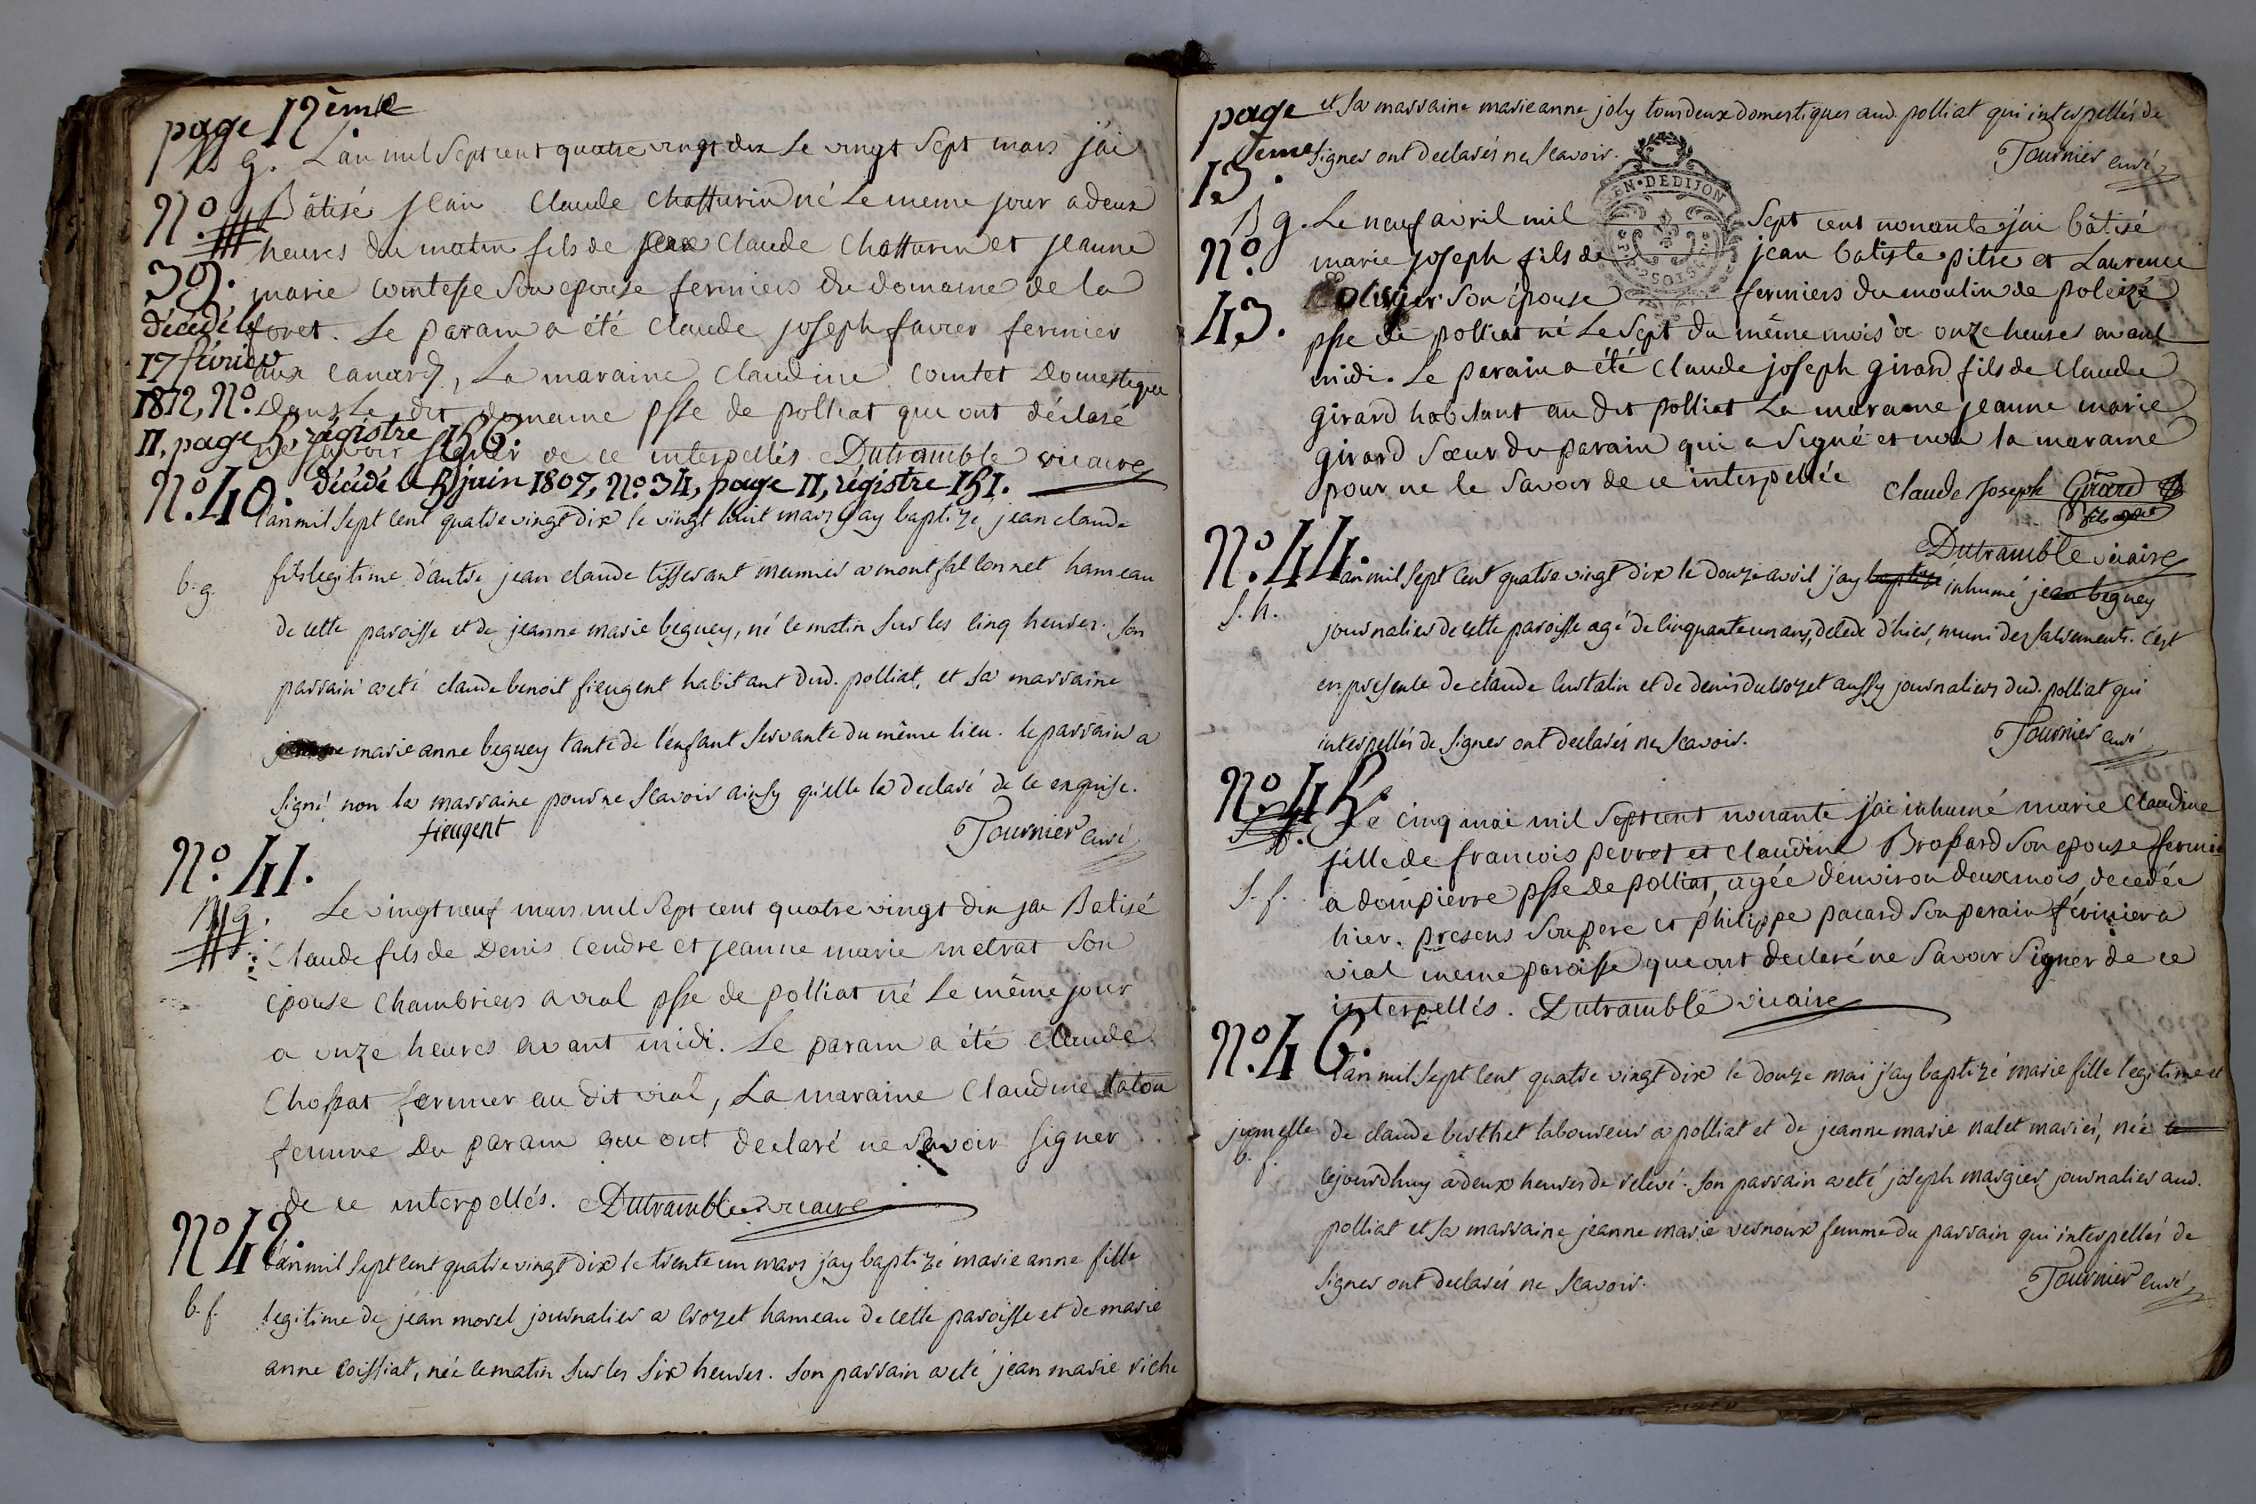 page 12ème
B g. L'an mil sept cent quatre vingt dix le vingt sept mars j'ai
N°. Bâtisé jean claude chatturin né le meme jour a deux
heures du matin fils de jean claude chatturin et jeanne
39. marie comtesse son epouse fermiers du domaine de la
décédé le foret. Le parain a été claude joseph favier fermier
17 février aux canard, La maraine claudine comtet Domestique
1812, N°. Dans le dit domaine psse de polliat qui ont déclaré
11, page 5, régistre 156. ne savoir signer de ce interpellés Dutramble vicaire
N°. 40. décédé le 5 juin 1807, N°. 34, page 11, régistre 151.
l'an mil sept cent quatre vingt dix le vingt huit mars j'ay baptizé jean claude
b. g. fils legitime d'autre jean claude tisserant meunier a montfalconnet hameau
de cette paroisse et de jeanne marie beguey, né ce matin sur les cinq heures. son
parrain a eté claude benoit fieugent habitant dud. polliat, et sa marraine
marie anne beguey tante de l'enfant servante du même lieu. le parrain a
signé non la marraine pour ne scavoir ainsy qu'elle la declaré de ce enquise.
fieugent Tournier curé
N°. 41.
B g. Le vingt neuf mars mil sept cent quatre vingt dix jai Batisé
claude fils de Denis cendre et jeanne marie metrat son
epouse chambriers a vial psse de polliat né le même jour
a onze heures avant midi. Le parain a été claude
chossat fermier au dit vial, La maraine claudine tatou
femme du parain qui ont declaré ne savoir signer
de ce interpellés. Dutramble vicaire
N° 42.
l'an mil sept cent quatre vingt dix le trente un mars j'ay baptizé marie anne fille
b. f. legitime de jean morel journalier a crozet hameau de cette paroisse et de marie
anne coissiat, née ce matin sur les six heures. son parrain a eté jean marie riche
page et sa marraine marie anne joly tous deux domestiques aud. polliat qui interpellés de
13ème. signer ont declarés ne scavoir. Tournier curé
GEN · DE DIJON
B g. Le neuf avril mil sept cent nonante j'ai bâtisé
N°. marie joseph fils de jean batiste pitre et Laurence
olivier son épouse fermiers du moulin de poleizé
43. psse de polliat né le sept du même mois a onze heures avant
midi. Le parain a été claude joseph girard fils de claude
girard habitant au dit polliat La maraine jeanne marie
girard sœur du parain qui a signé et non la maraine
pour ne le savoir de ce interpellée claude Joseph Girard
Dutramble vicaire
N°. 44.
l'an mil sept cent quatre vingt dix le douze avril j'ay baptizé inhumé jean beguey
s. h. journalier de cette paroisse agé de cinquante un ans, decedé d'hier, muni des sacrements. c'est
en presence de claude curtalin et de denis ducrozet aussy journaliers dud. polliat qui
interpellés de signer ont declarés ne scavoir. Tournier curé
N°. 45.
Le cinq mai mil sept cent nonante j'ai inhumé marie claudine
fille de francois perret et claudine Brossard son epouse fermier
s. f. a dompierre psse de polliat, agée d'environ deux mois, decedée
hier. presens son pere et philippe pacard son parain fermier a
vial meme paroisse qui ont declaré ne savoir signer de ce
interpellés. Dutramble vicaire
N°. 46.
l'an mil sept cent quatre vingt dix le douze mai j'ay baptizé marie fille legitime et
jumelle de claude berthet laboureur a polliat et de jeanne marie nalet mariés, née
b. f. cejourd'huy a deux heures de relevé. son parrain a eté joseph margier journalier aud.
polliat et sa marraine jeanne marie vernoux femme du parrain qui interpellés de
signer ont declarés ne scavoir. Tournier curé